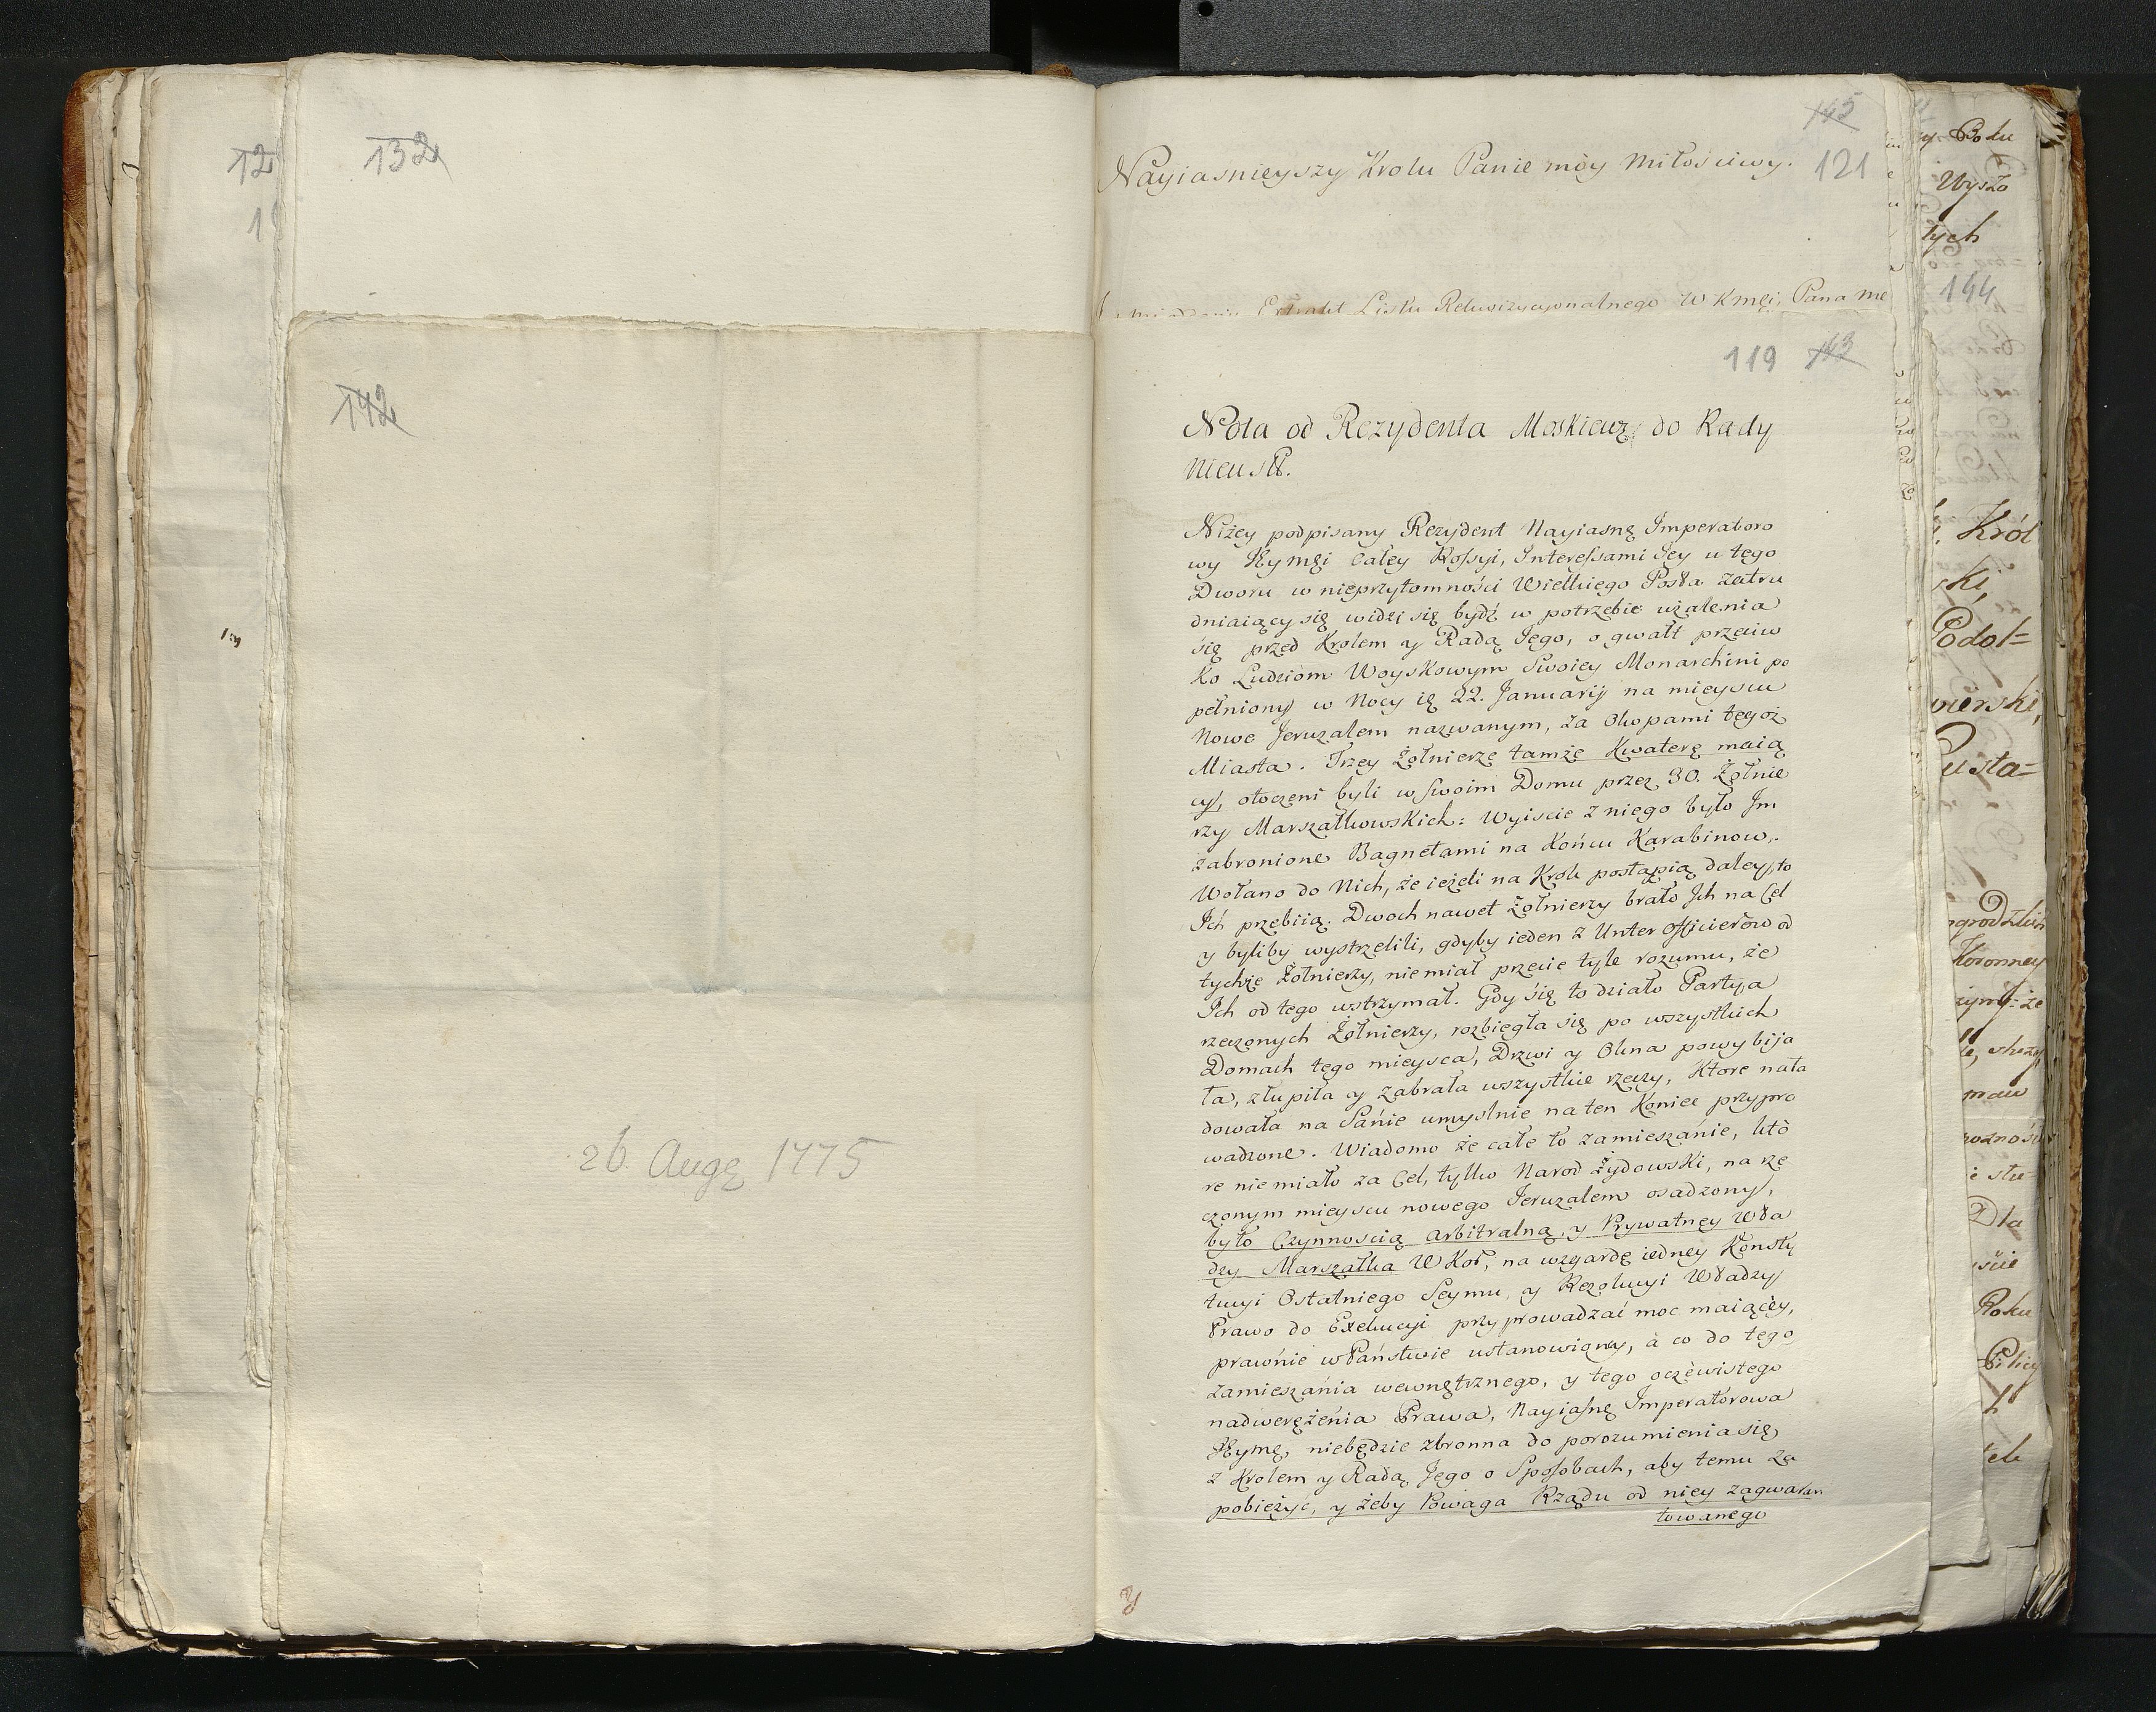 12
132
142
26. Aug 1775
145
121
Nayiasnieyszy Krolu Panie móy Miłościwy.
Extrakt Listu Rekwizycyonalnego W Kmći, Pana me
119 143
Nota od Rezydenta Moskiews: do Rady
Nieust.
Niżey podpisany Rezydent Nayiasnę Imperatoro
wy Jeymći całey Rossyi, Interessami Jey u tego
Dworu w nieprzytomności Wielkiego Posła zatru
dniaiący się widzi się bydź w potrzebie użalenia
się przed Krolem y Radą Jego, o gwałt przeciw
ko Ludziom Woyskowym Swoiey Monarchini po
pełniony w Nocy 22. Januarij na mieyscu
Nowe Jeruzalem nazwanym, za Okopami tegoż
Miasta. Trzey Żołnierze tamże Kwaterę maią
cy, otoczeni byli w swoim Domu przez 30. Żołnie
rzy Marszałkowskich: Wyiscie z niego było Im
zabronione Bagnetami na Końcu Karabinow.
Wołano do Nich, że ieżeli na Krok postąpią daley, to
Ich przebiią. Dwoch nawet Żołnierzy brało Ich na Cel
y byliby wystrzelili, gdyby ieden z Unter Officierow od
tychże Żołnierzy, niemiał przecie tyle rozumu, że
Ich od tego wstrzymał. Gdy się to działo Partyia
rzeczonych Żołnierzy, rozbiegła się po wszystkich
Domach tego mieysca, Drzwi y Okna powybija
ła, złupiła y zabrała wszystkie rzeczy, Ktore nała
dowała na Sanie umyslnie na ten Koniec przypro
wadzone. Wiadomo że całe to zamieszanie, któ
re niemiało za Cel, tylko Narod Żydowski, na rze
czonym mieyscu nowego Jeruzalem osadzony,
było Czynnoscią arbitralną, y Prywatney Wła
dzy Marszałka W Kor, na wzgardę iedney Konsty
tucyi Ostatniego Seymu, y Rezolucyi Władzy
Prawo do Exekucyi przyprowadzać moc maiącey,
prawnie w Państwie ustanowioney, à co do tego
zamieszania wewnętrznego, y tego oczewistego
nadwerężenia Prawa, Nayiasnę Imperatorowa
Jeymć, niebędzie zbronna do porozumienia się
z Krolem y Radą Jego o Sposobach, aby temu za
pobieżyć, y żeby Powaga Rządu od niey zagwaran
towanego
y Boku
Wyszo
tych
144
Król
ski,
Podol=
Pusta=
Koronney
Dla
Roku